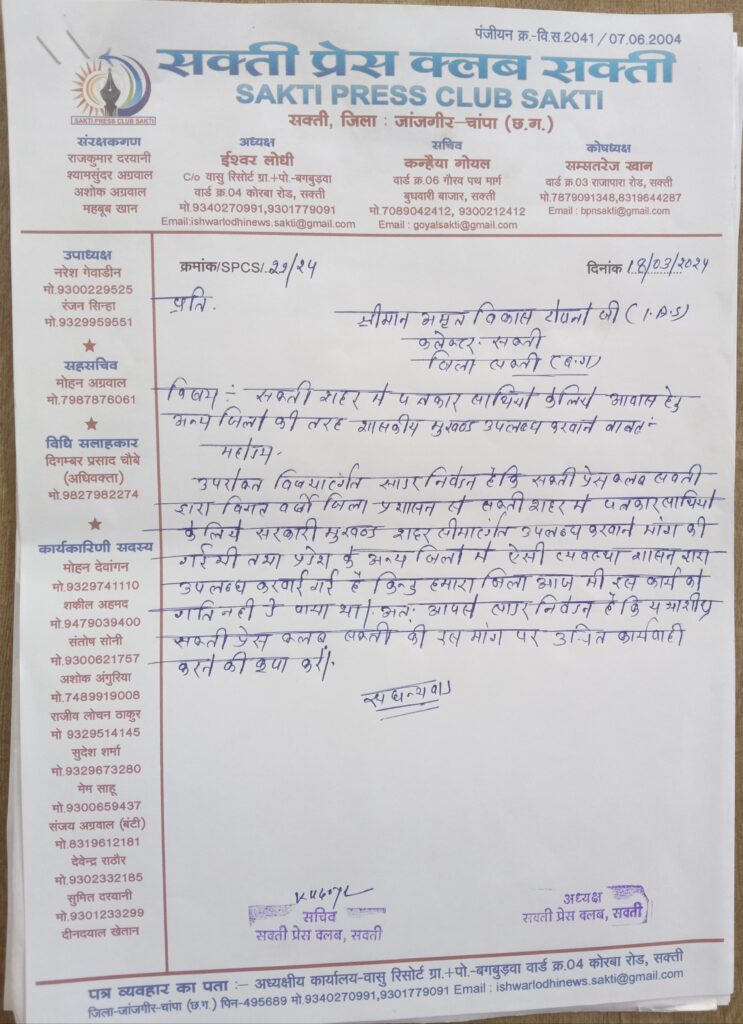 पंजीयन क्र.-वि.स.2041 / 07.06.2004
सक्ती प्रेस क्लब सक्ती
SAKTI PRESS CLUB SAKTI
SAKTI PRESS CLUB SAKTI
सक्ती, जिला : जांजगीर-चांपा (छ.ग.)
संरक्षकगण
राजकुमार दरयानी
श्यामसुंदर अग्रवाल
अशोक अग्रवाल
महबूब खान
अध्यक्ष
ईश्वर लोधी
C/o वासु रिसोर्ट ग्रा.+पो.-बगबुड़वा
वार्ड क्र.04 कोरबा रोड, सक्ती
मो.9340270991,9301779091
Email:ishwarlodhinews.sakti@gmail.com
सचिव
कन्हैया गोयल
वार्ड क्र.06 गौरव पथ मार्ग
बुधवारी बाजार, सक्ती
मो.7089042412, 9300212412
Email : goyalsakti@gmail.com
कोषध्यक्ष
सम्सतरेज खान
वार्ड क्र.03 राजापारा रोड, सक्ती
मो.7879091348,8319644287
Email : bpnsakti@gmail.com
उपाध्यक्ष
नरेश गेवाडीन
मो.9300229525
रंजन सिन्हा
मो.9329959551
सहसचिव
मोहन अग्रवाल
मो.7987876061
विधि सलाहकार
दिगम्बर प्रसाद चौबे
(अधिवक्ता)
मो.9827982274
कार्यकारिणी सदस्य
मोहन देवांगन
मो.9329741110
शकील अहमद
मो.9479039400
संतोष सोनी
मो.9300621757
अशोक अंगुरिया
मो.7489919008
राजीव लोचन ठाकुर
मो 9329514145
सुदेश शर्मा
मो.9329673280
मेम साहू
मो.9300659437
संजय अग्रवाल (बंटी)
मो.8319612181
देवेन्द्र राठौर
मो.9302332185
सुमित दरयानी
मो.9301233299
दीनदयाल खेतान
क्रमांक/SPCS/.29/24 दिनांक 18/03/2024
प्रति.
श्रीमान अमृत विकास तोपनो जी (I.A.S)
कलेक्टर- सक्ती
जिला सक्ती (छ.ग)
विषय :- सक्ती शहर मे पत्रकार साथियो के लिये आवास हेतु
अन्य जिलो की तरह शासकीय भुखण्ड उपलब्ध करवाने बाबत:-
महोदय-
उपरोक्त विषयांतर्गत सादर निवेदन है कि सक्ती प्रेस क्लब सक्ती
द्वारा विगत वर्षो जिला प्रशासन से सक्ती शहर मे पत्रकार साथियो
के लिये सरकारी भुखण्ड शहर सीमांतर्गत उपलब्ध करवाने मांग की
गई थी तथा प्रदेश के अन्य जिलो मे ऐसी व्यवस्था शासन द्वारा
उपलब्ध करवाई गई है किन्तु हमारा जिला आज भी इस कार्य को
गति नही दे पाया था। अत: आपसे सादर निवेदन है कि यथाशीघ्र
सक्ती प्रेस क्लब सक्ती की इस मांग पर उचित कार्यवाही
करने की कृपा करें।
सधन्यवाद
सचिव
सक्ती प्रेस क्लब, सक्ती
अध्यक्ष
सक्ती प्रेस क्लब, सक्ती
पत्र व्यवहार का पता :– अध्यक्षीय कार्यालय-वासु रिसोर्ट ग्रा.+पो.-बगबुड़वा वार्ड क्र.04 कोरबा रोड, सक्ती
जिला-जांजगीर-चांपा (छ.ग.) पिन-495689 मो.9340270991,9301779091 Email : ishwarlodhinews.sakti@gmail.com